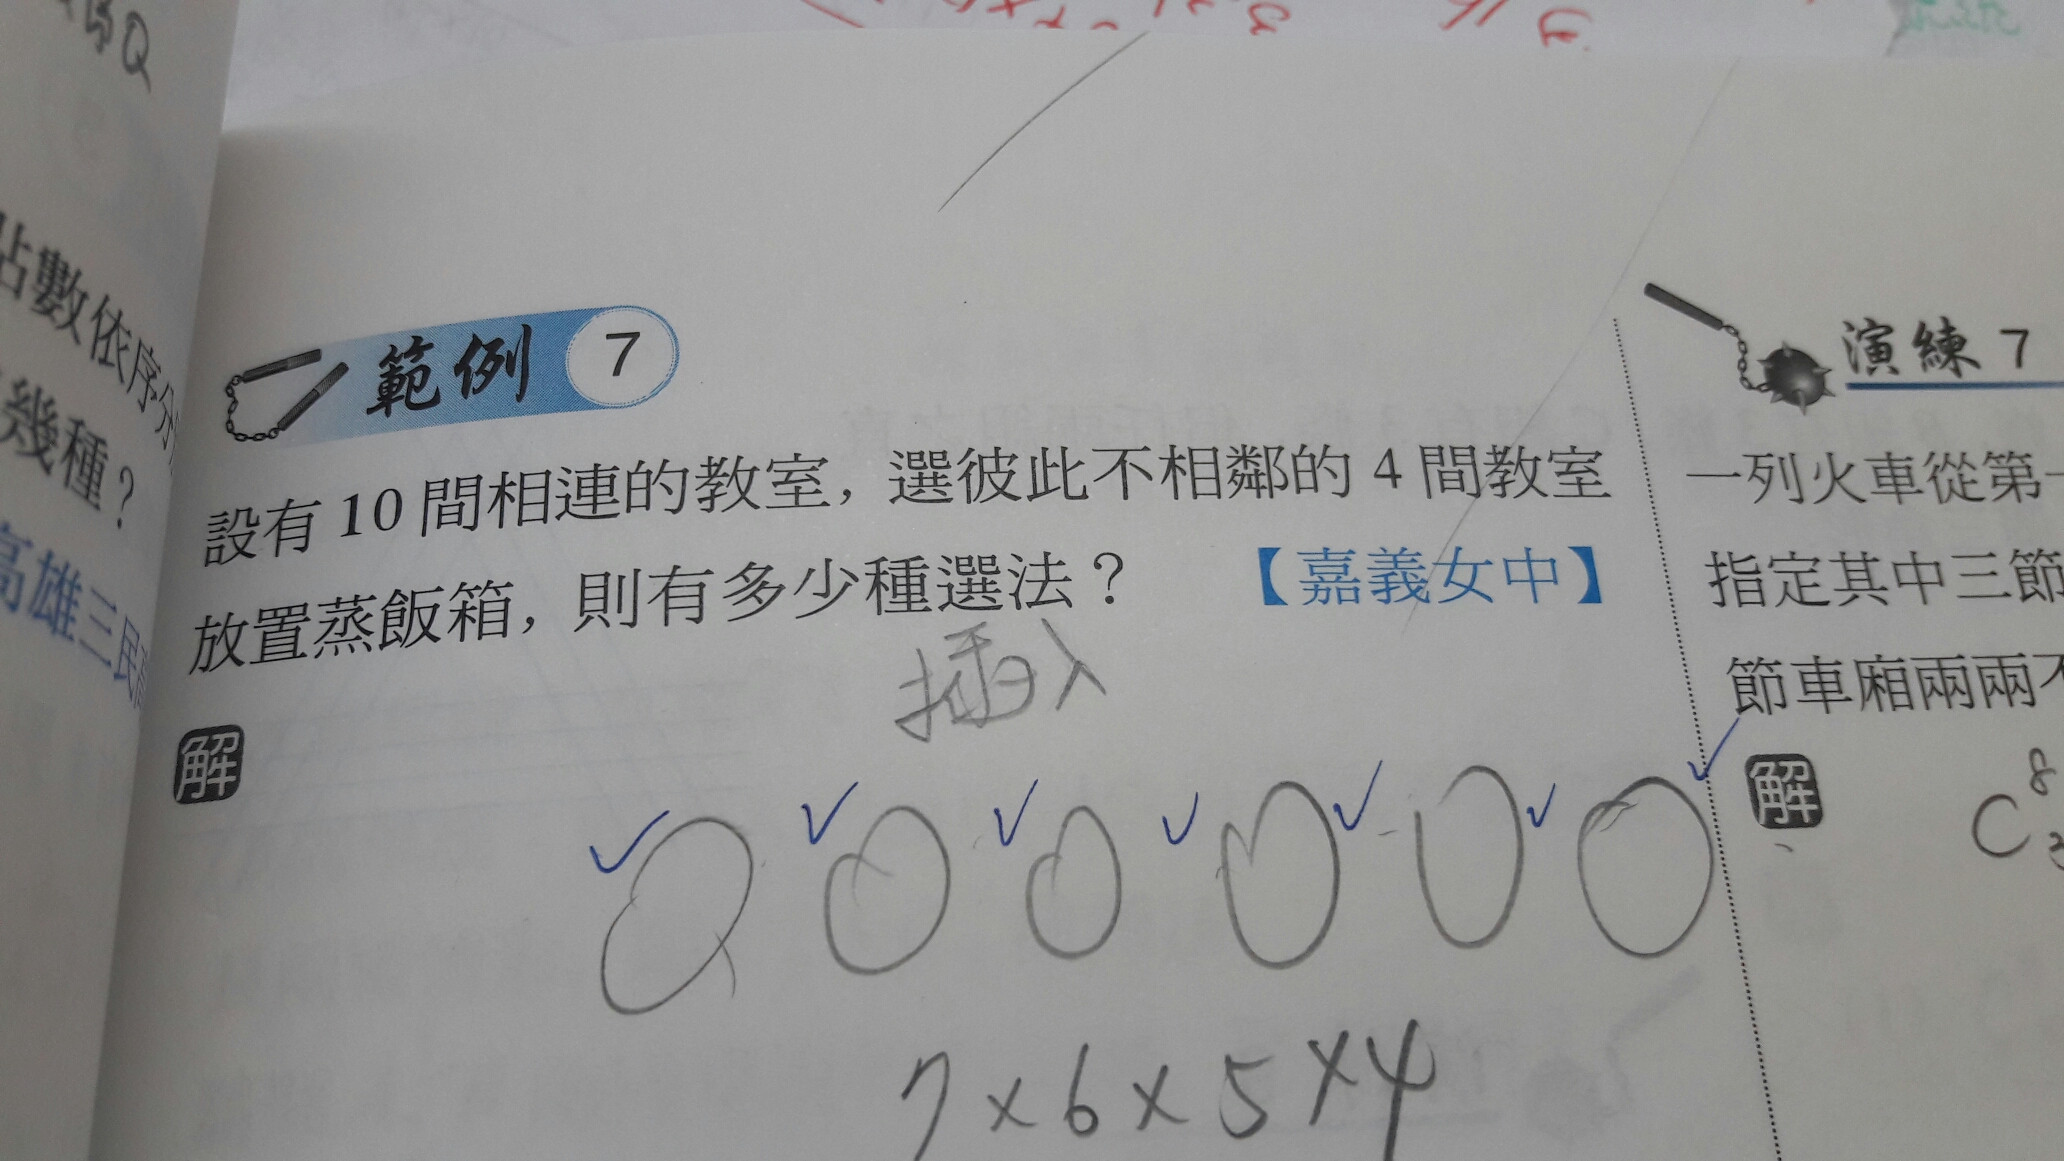 點數依序分
幾種？
高雄三民
範例 7
設有 10 間相連的教室，選彼此不相鄰的 4 間教室
放置蒸飯箱，則有多少種選法？ 【嘉義女中】
插入
解
7×6×5×4
演練 7
一列火車從第一
指定其中三節
節車廂兩兩不
解
C 8 3